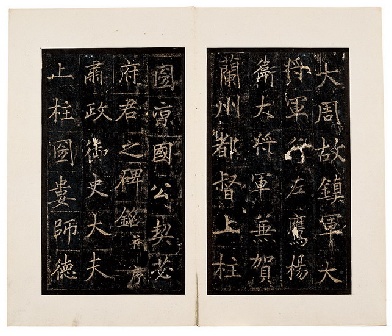 大周故鎮軍大
將軍行左鷹揚
衛大將軍兼賀
蘭州都督上柱
圀國公契苾
府君之碑銘并序
肅政御史大夫
上柱圀婁師德